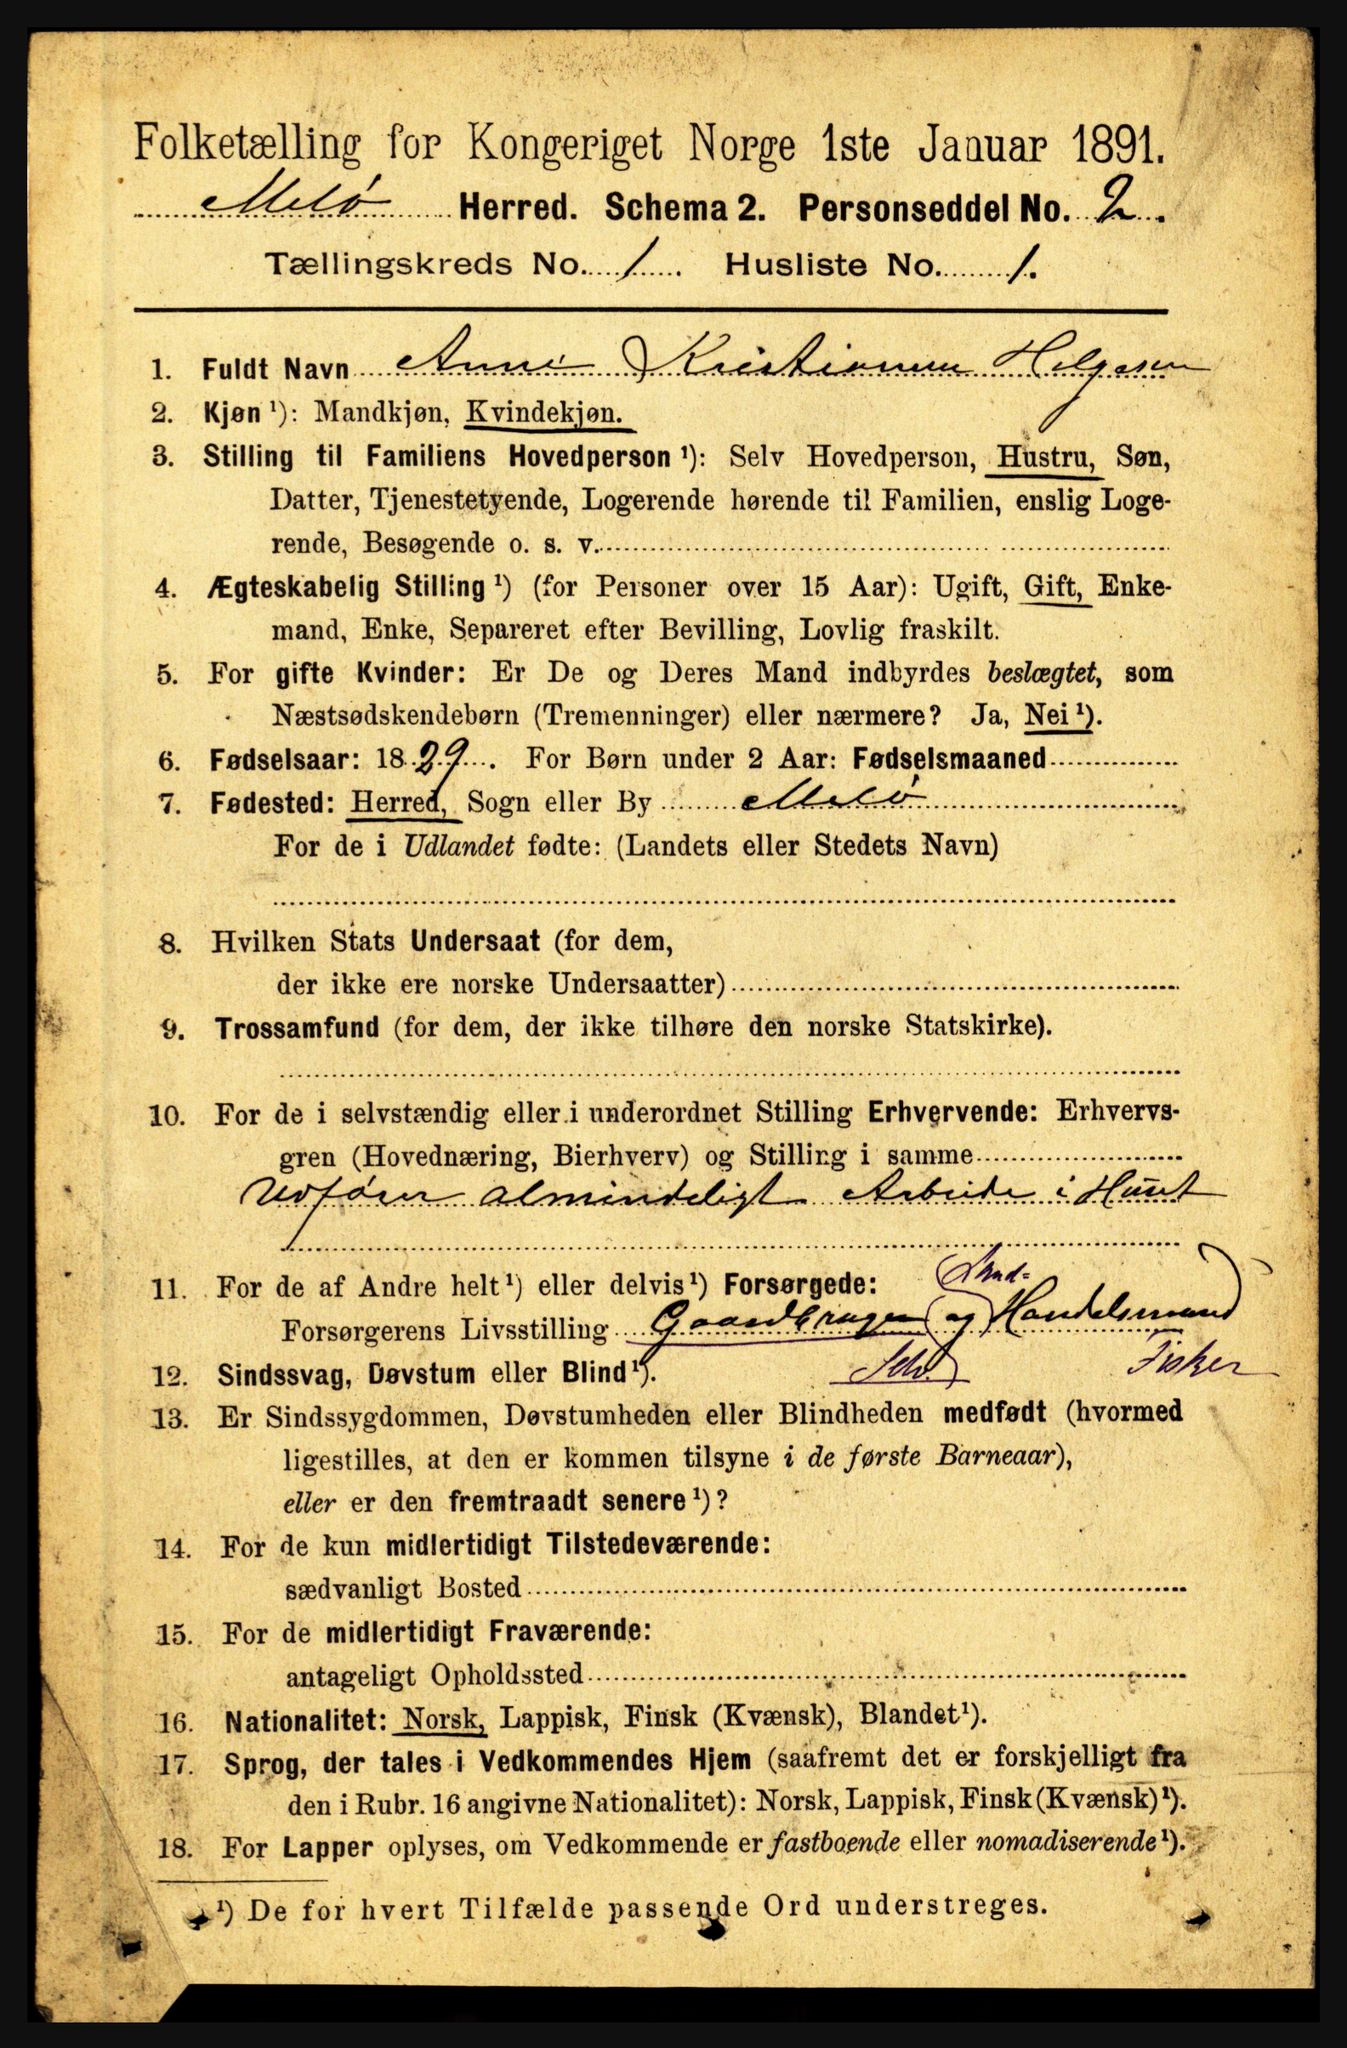 Folketælling for Kongeriget Norge 1ste Januar 1891.
Melö Herred. Schema 2. Personseddel No. 2.
Tællingskreds No. 1. Husliste No. 1.
1. Fuldt Navn Anne Kristianna Helgesen
2. Kjøn ¹): Mandkjøn, Kvindekjøn.
3. Stilling til Familiens Hovedperson ¹): Selv Hovedperson, Hustru, Søn,
Datter, Tjenestetyende, Logerende hørende til Familien, enslig Loge-
rende, Besøgende o. s. v.
4. Ægteskabelig Stilling ¹) (for Personer over 15 Aar): Ugift, Gift, Enke-
mand, Enke, Separeret efter Bevilling, Lovlig fraskilt.
5. For gifte Kvinder: Er De og Deres Mand indbyrdes beslægtet, som
Næstsødskendebørn (Tremenninger) eller nærmere? Ja, Nei ¹).
6. Fødselsaar: 1829. For Børn under 2 Aar: Fødselsmaaned
7. Fødested: Herred, Sogn eller By Melö
For de i Udlandet fødte: (Landets eller Stedets Navn)
8. Hvilken Stats Undersaat (for dem,
der ikke ere norske Undersaatter)
9. Trossamfund (for dem, der ikke tilhøre den norske Statskirke).
10. For de i selvstændig eller i underordnet Stilling Erhvervende: Erhvervs-
gren (Hovednæring, Bierhverv) og Stilling i samme
Udförer almindeligt Arbeide i Huset
11. For de af Andre helt ¹) eller delvis ¹) Forsørgede:
Forsørgerens Livsstilling Gaardbruger og Handelsmand
12. Sindssvag, Døvstum eller Blind ¹). Selv Fisker
13. Er Sindssygdommen, Døvstumheden eller Blindheden medfødt (hvormed
ligestilles, at den er kommen tilsyne i de første Barneaar),
eller er den fremtraadt senere ¹)?
14. For de kun midlertidigt Tilstedeværende:
sædvanligt Bosted
15. For de midlertidigt Fraværende:
antageligt Opholdssted
16. Nationalitet: Norsk, Lappisk, Finsk (Kvænsk), Blandet ¹).
17. Sprog, der tales i Vedkommendes Hjem (saafremt det er forskjelligt fra
den i Rubr. 16 angivne Nationalitet): Norsk, Lappisk, Finsk (Kvænsk) ¹).
18. For Lapper oplyses, om Vedkommende er fastboende eller nomadiserende ¹).
¹) De for hvert Tilfælde passende Ord understreges.